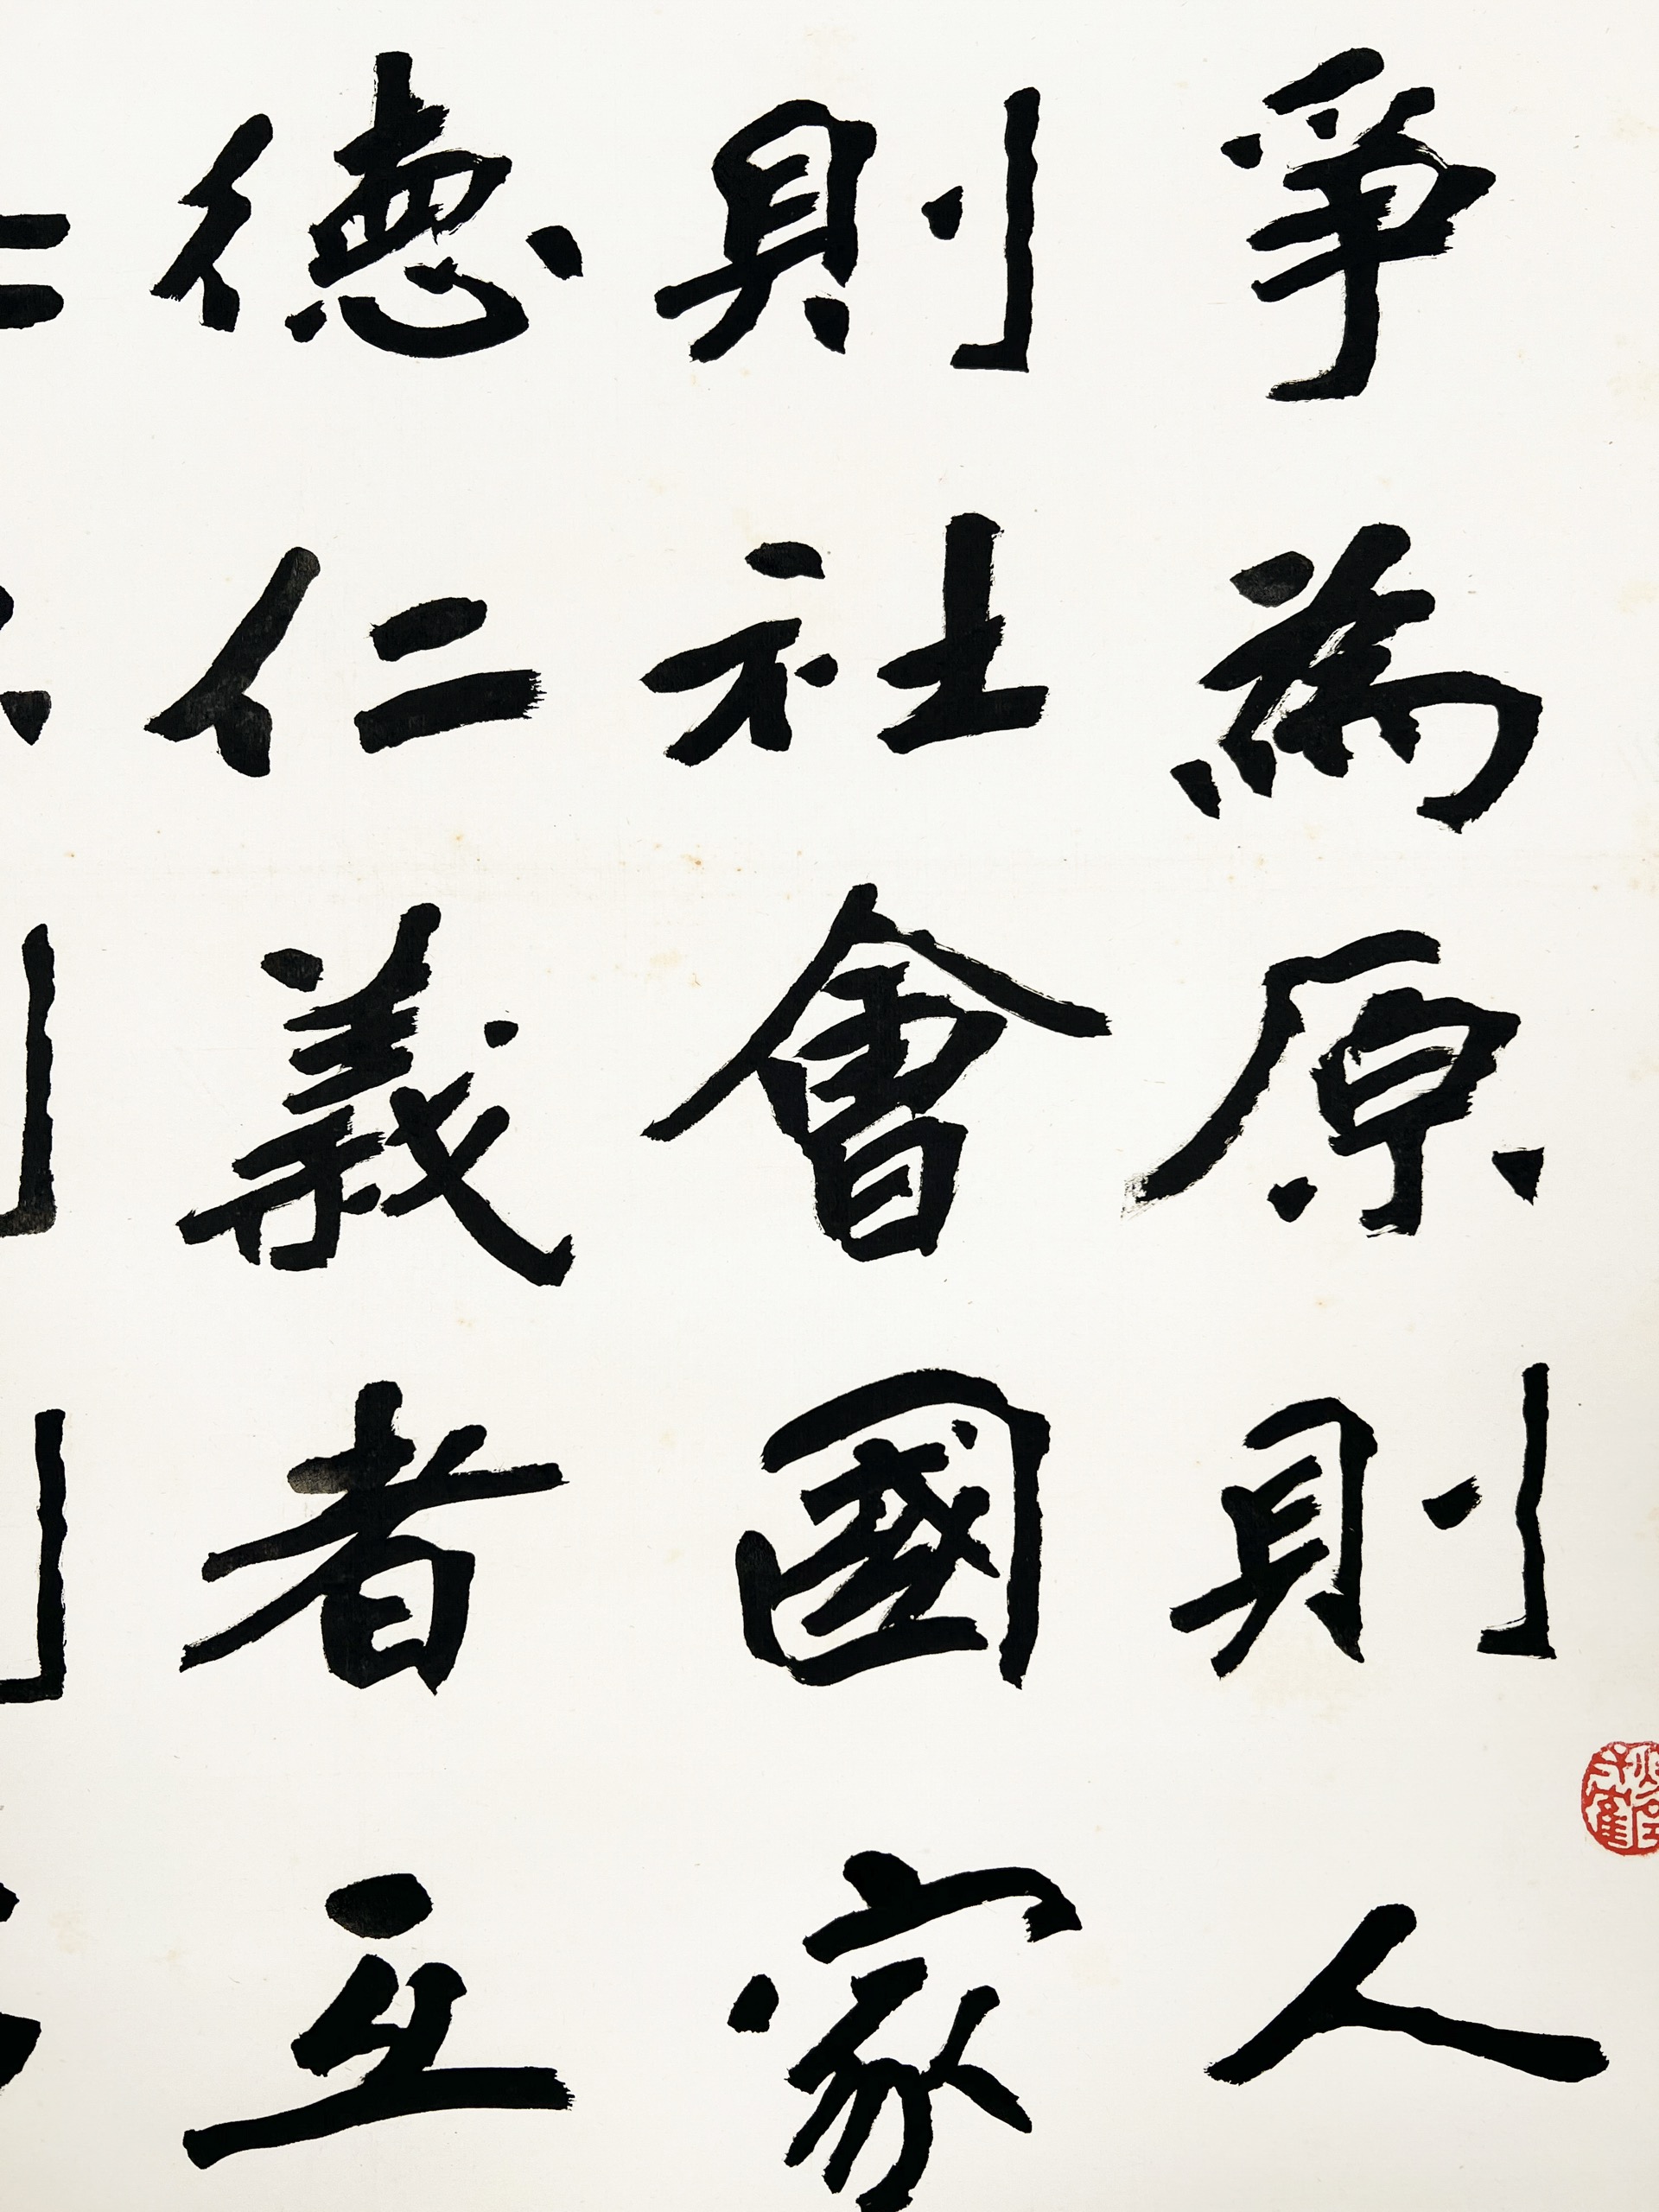 爭為原則人
則社會國家
德仁義者互